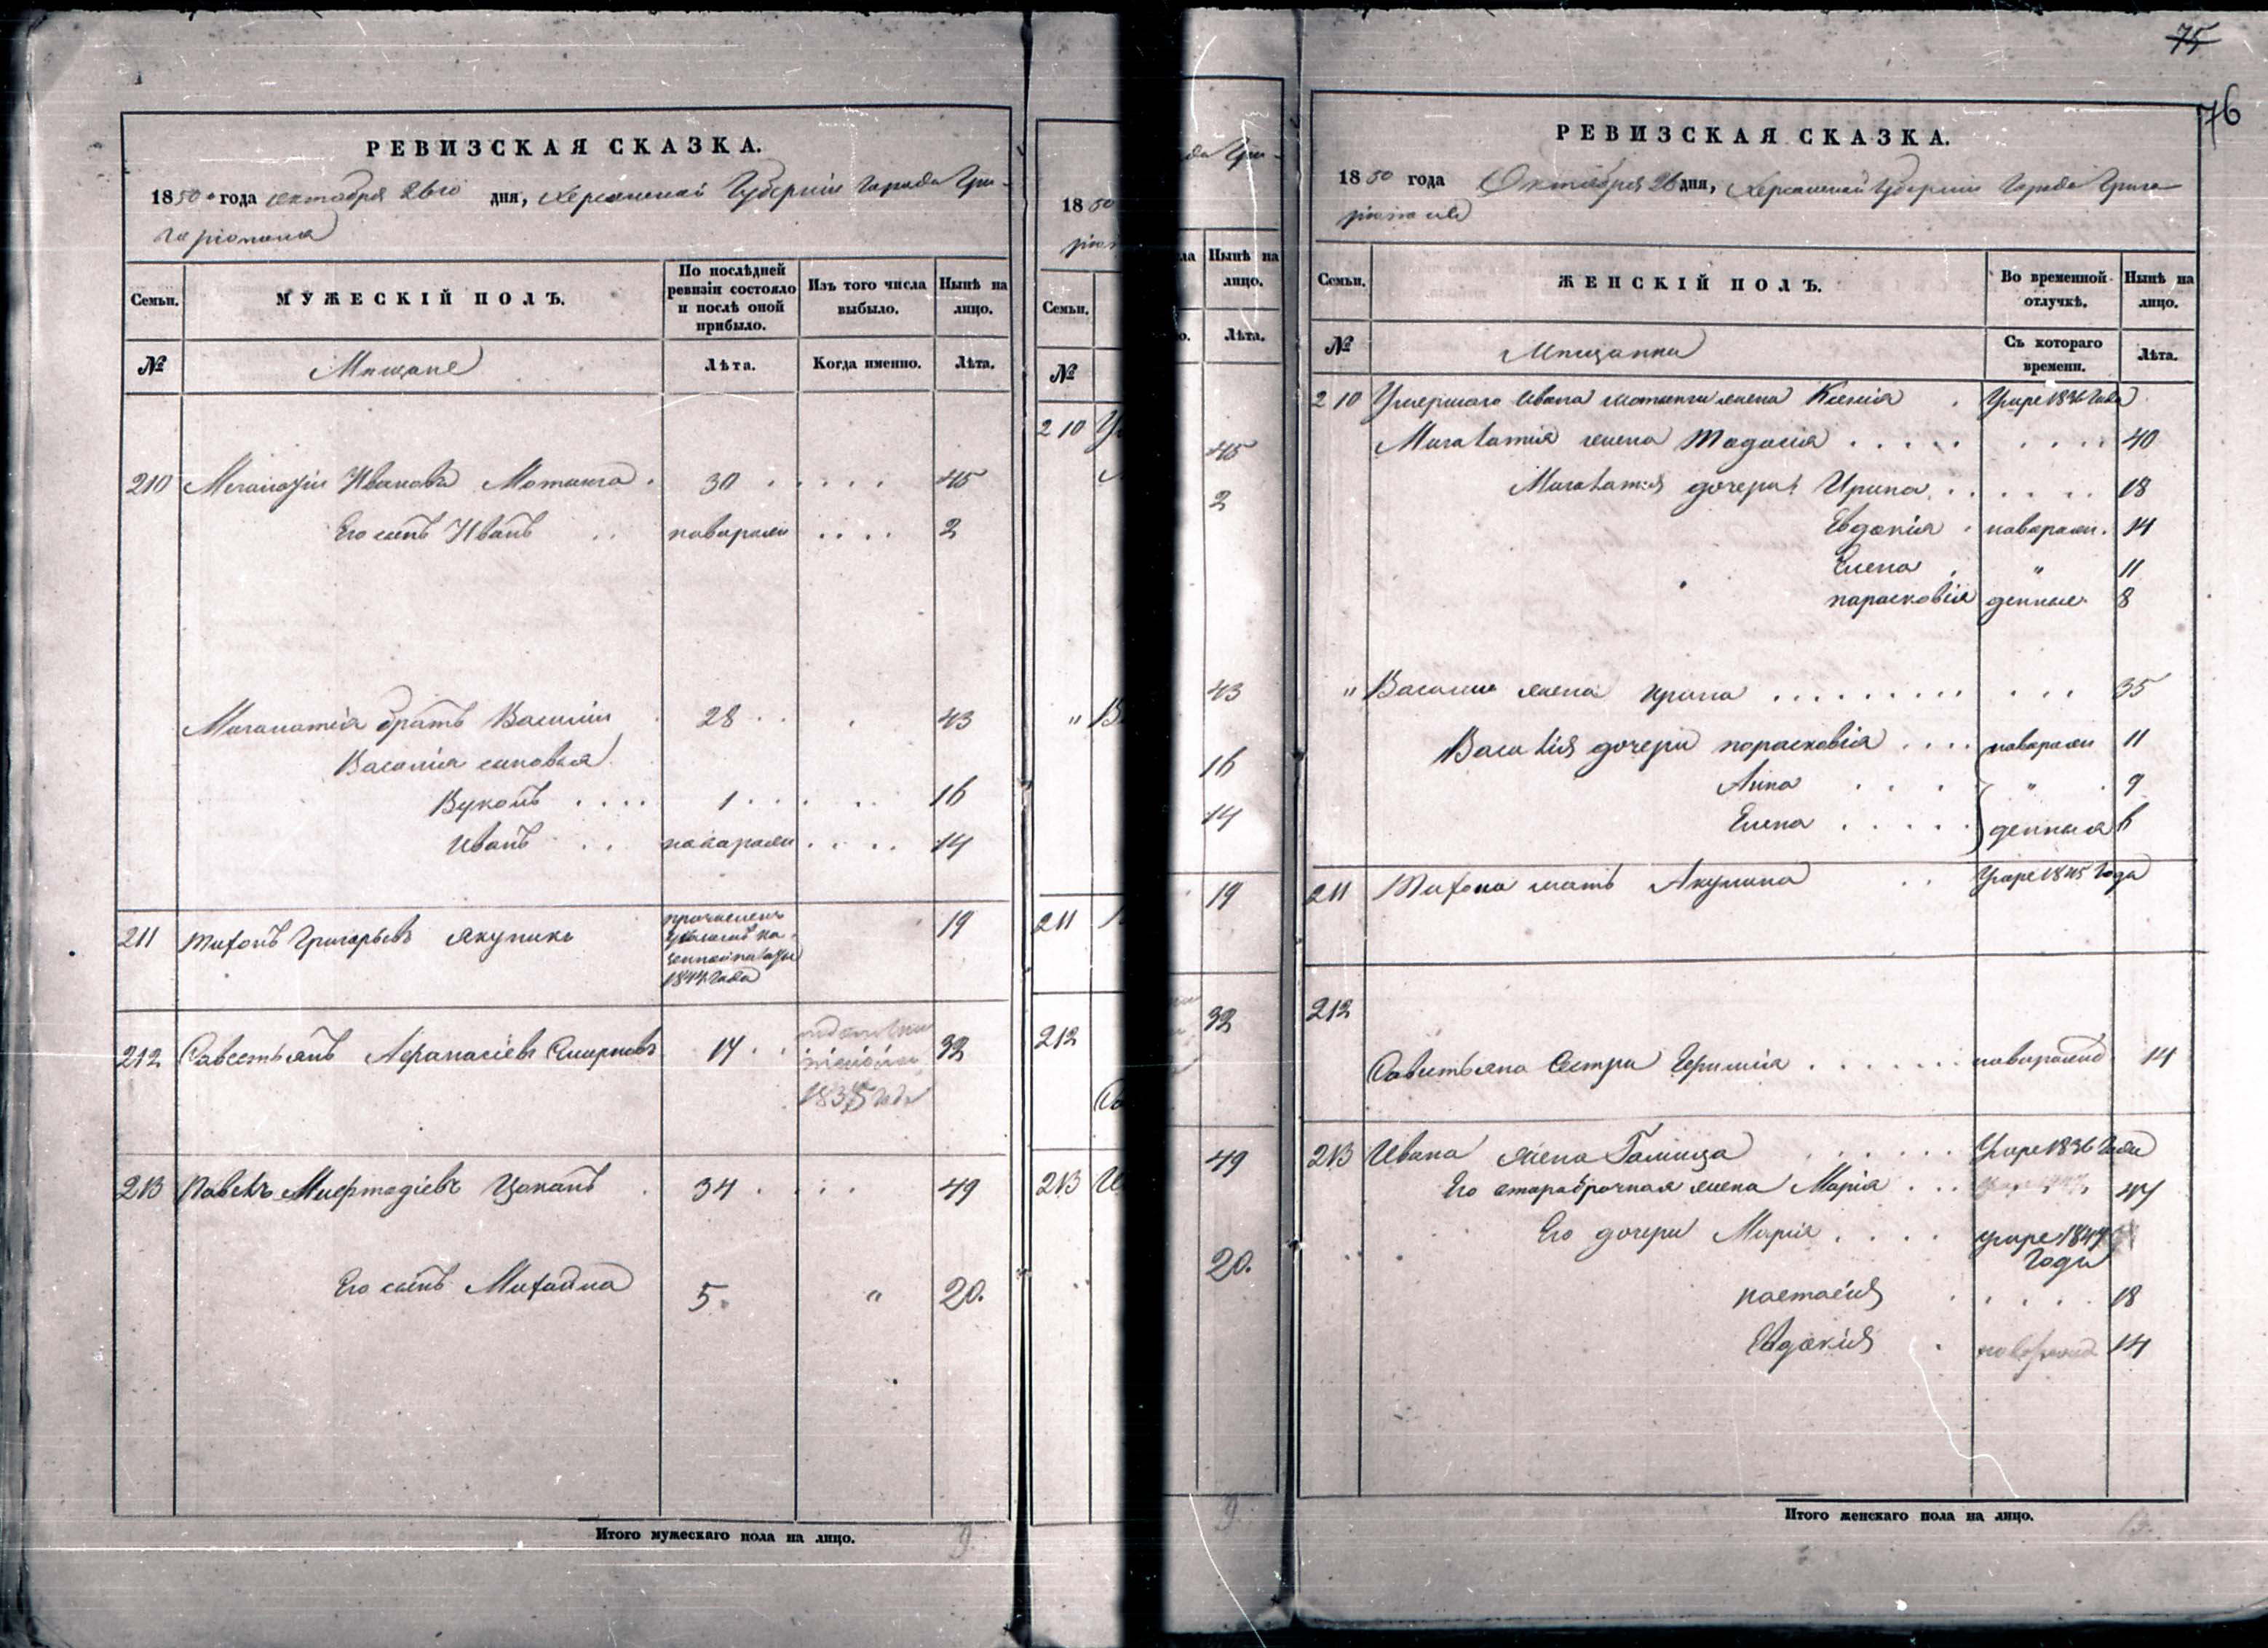 РЕВИЗСКАЯ СКАЗКА.
1850 года октября 26го дня, Херсонской Губернiи Города Гри-
горiополя
Семьи.
МУЖЕСКІЙ ПОЛЪ.
По послѣдней ревизіи состояло и послѣ оной прибыло.
Изъ того числа выбыло.
Нынѣ на лицо.
№
Мещане
Лѣта.
Когда именно.
Лѣта.
210 Иванова 30 45
Его сынъ Иванъ новорожд 2
братъ Василiй 28 43
Василiя сыновья
Вуколъ 1 16
Иванъ новорожд 14
211 Тихонъ Григорьевъ Якуникъ 19
1844 года
212 Савостьянъ Афанасiевъ Смирновъ 17 32
1835 года
213 Павелъ Цоканъ 34 49
Его сынъ Михайла 5 " 20.
Итого мужескаго пола на лицо. 9
1850
Семьи.
№
210
"
211
212
213
да Гри-
Нынѣ на лицо.
Лѣта.
45
2
43
16
14
19
32
49
20.
9
75
76
РЕВИЗСКАЯ СКАЗКА.
1850 года Октября 26 дня, Херсонской Губернiи Города Григо-
рiополя
Семьи.
ЖЕНСКІЙ ПОЛЪ.
Во временной отлучкѣ.
Нынѣ на лицо.
№
Мещанки
Съ котораго времени.
Лѣта.
210 Умершаго Ивана жена Ксенiя Умре 1836 Года
жена Тодосiя 40
дочери Ирина 18
Евдокiя новорожд. 14
Елена " 11
парасковiя денные 8
" Василiя жена Ирина 35
Василiя дочери парасковiя новорожд 11
Анна " 9
Елена денныя 6
211 Тихона мать Акулина Умре 1845 Года
212
Савостьяна Сестра новорожд 14
213 Ивана жена Умре 1836 Года
Его второбрачная жена Марiя 47
Его дочери Марiя умре 1847
Года
настасiя 18
Евдокiя новорожд 14
Итого женскаго пола на лицо.